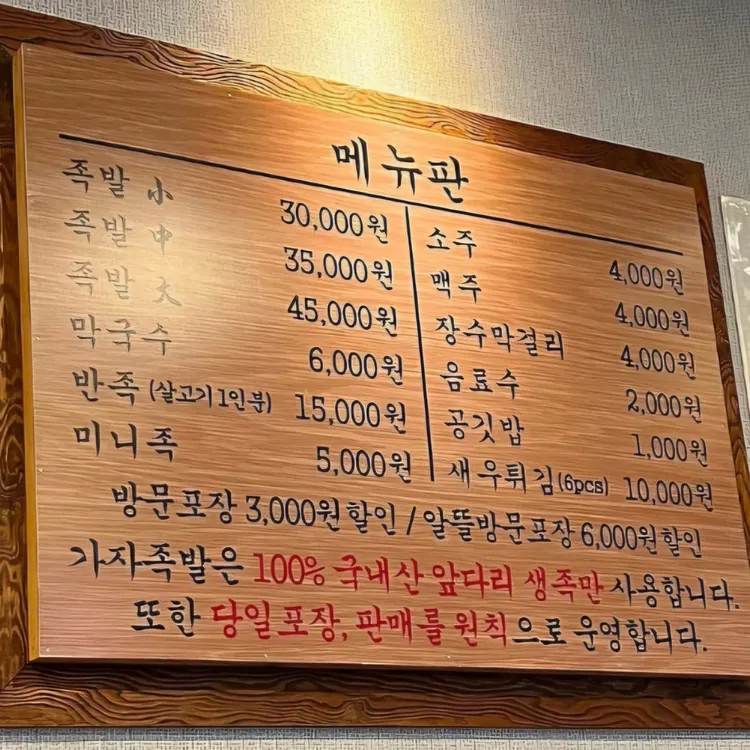 메뉴판
족발 小 30,000원
족발 中 35,000원
족발 大 45,000원
막국수 6,000원
반족 (살고기 1인분) 15,000원
미니족 5,000원
소주 4,000원
맥주 4,000원
장수막걸리 4,000원
음료수 2,000원
공깃밥 1,000원
새우튀김 (6pcs) 10,000원
방문포장 3,000원 할인 / 알뜰방문포장 6,000원 할인
가자족발은 100% 국내산 앞다리 생족만 사용합니다.
또한 당일 포장, 판매를 원칙으로 운영합니다.